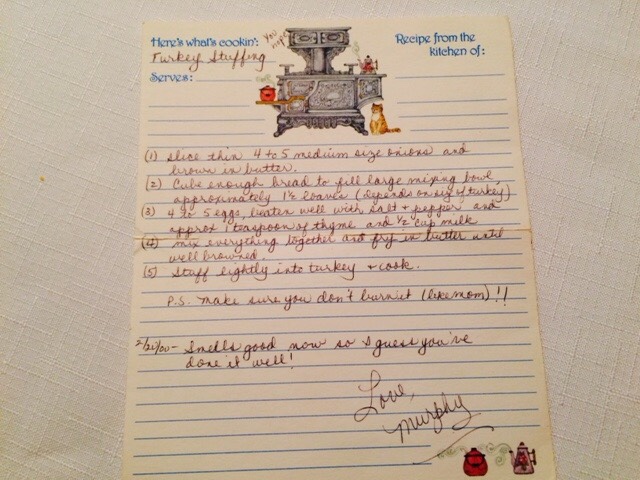 Here's what's cookin': You hope
Recipe from the
kitchen of:
Turkey Stuffing
Serves:
(1) Slice thin 4 to 5 medium size onions and
brown in butter.
(2) Cube enough bread to fill large mixing bowl
approximately 1½ loaves (depends on size of turkey)
(3) 4 to 5 eggs, beaten well with salt & pepper and
approx 1 teaspoon of thyme and ½ cup milk
(4) mix everything together and fry in butter until
well browned.
(5) Stuff lightly into turkey & cook.
P.S. Make sure you don't burn it (like mom)!!
2/20/00 - Smells good now so I guess you've
done it well!
Love,
Murphy